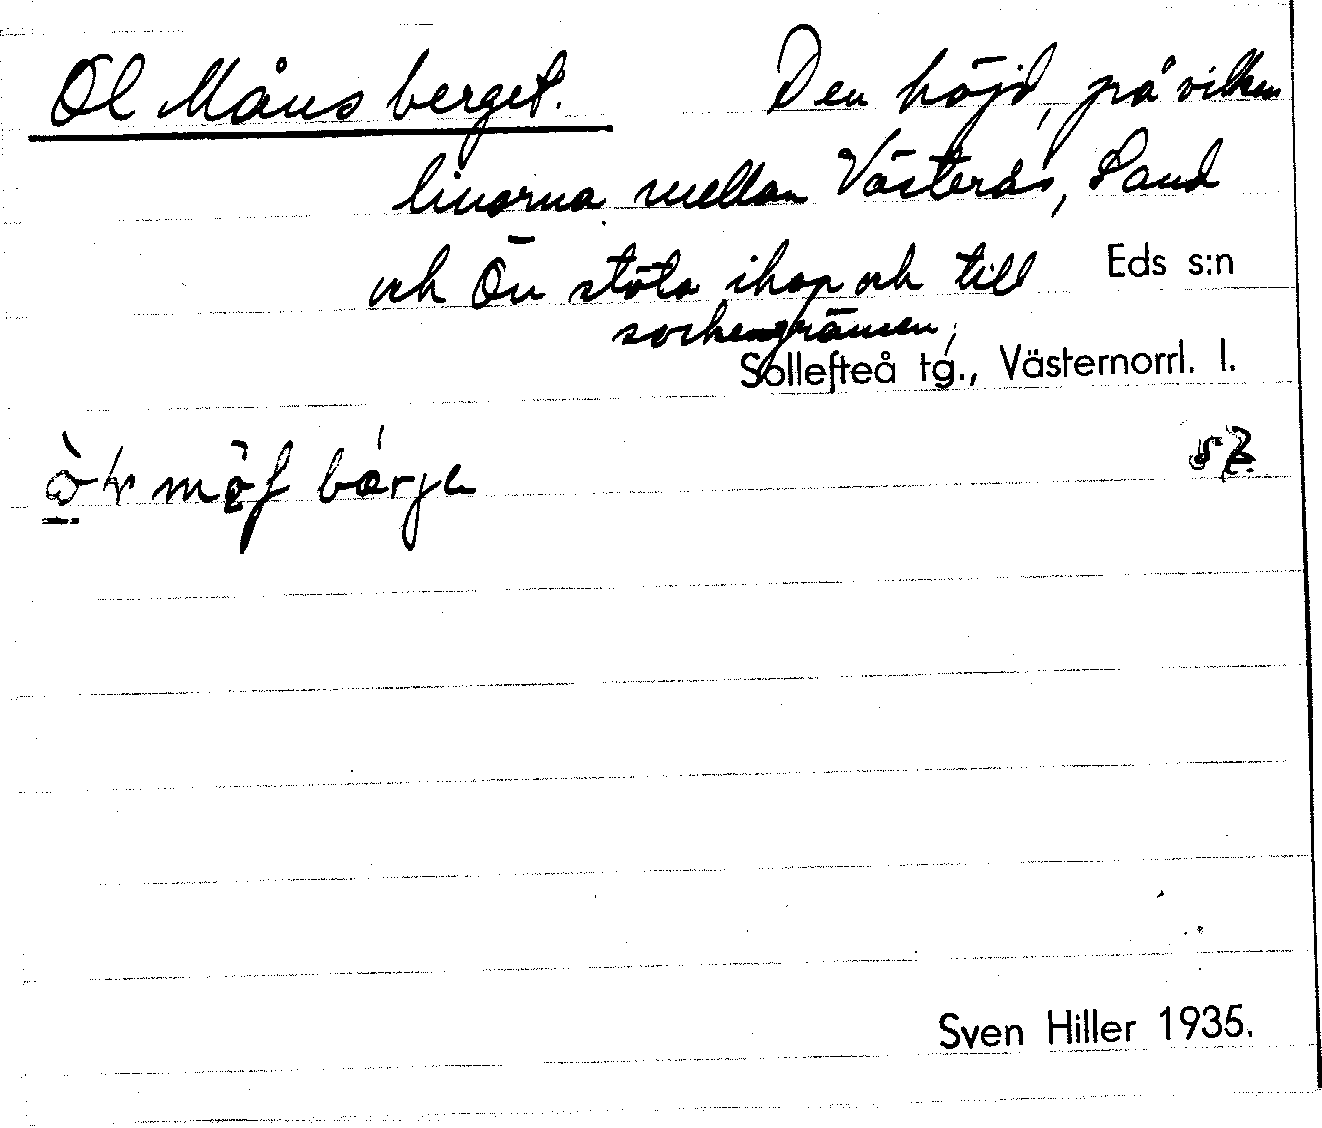 Ol Månsberget. Den höjd, på vilken
linorna mellan Västerås, Sand
och Ön stöta ihop och till
Eds s:n
sockengränsen,
Sollefteå tg., Västernorrl. l.
Sven Hiller 1935.